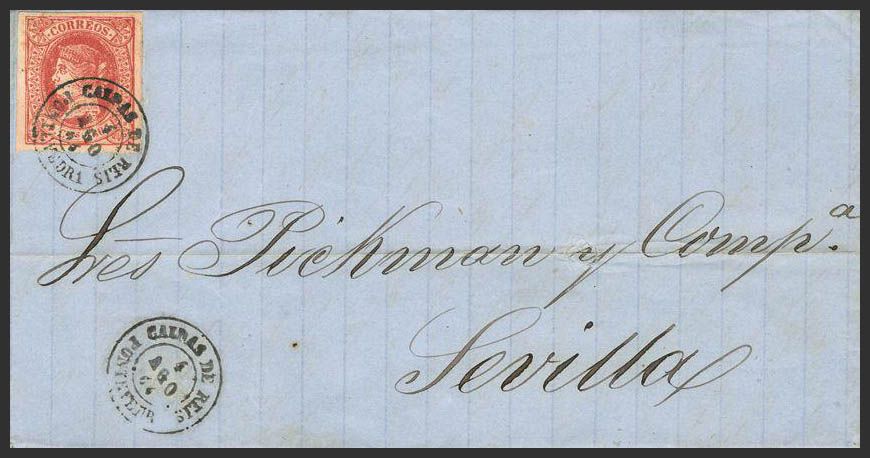 CORREOS
CALDAS DE REIS
4
AGO
Sres Pickman y Comp.ª
Sevilla
CALDAS DE REIS
4
AGO
64